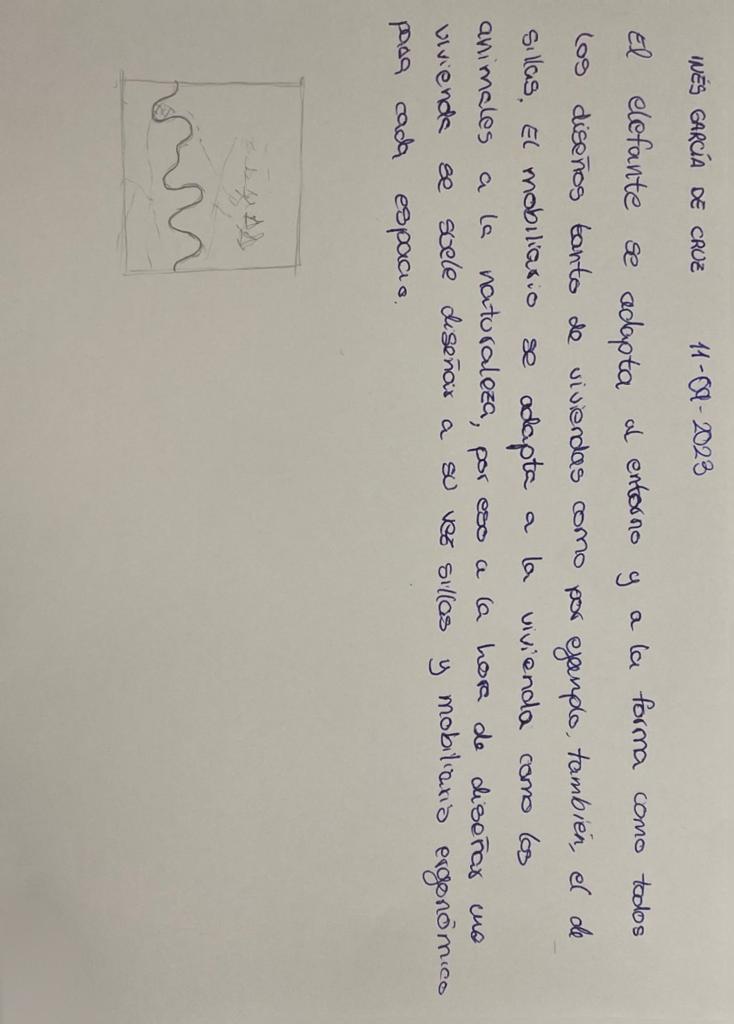 INÉS GARCÍA DE CRUZ 11-09-2023
El elefante se adapta al entorno y a la forma como todos
los diseños tanto de viviendas como por ejemplo, también, el de
sillas. El mobiliario se adapta a la vivienda como los
animales a la naturaleza, por eso a la hora de diseñar una
vivienda se suele diseñar a su vez sillas y mobiliario ergonómico
para cada espacio.